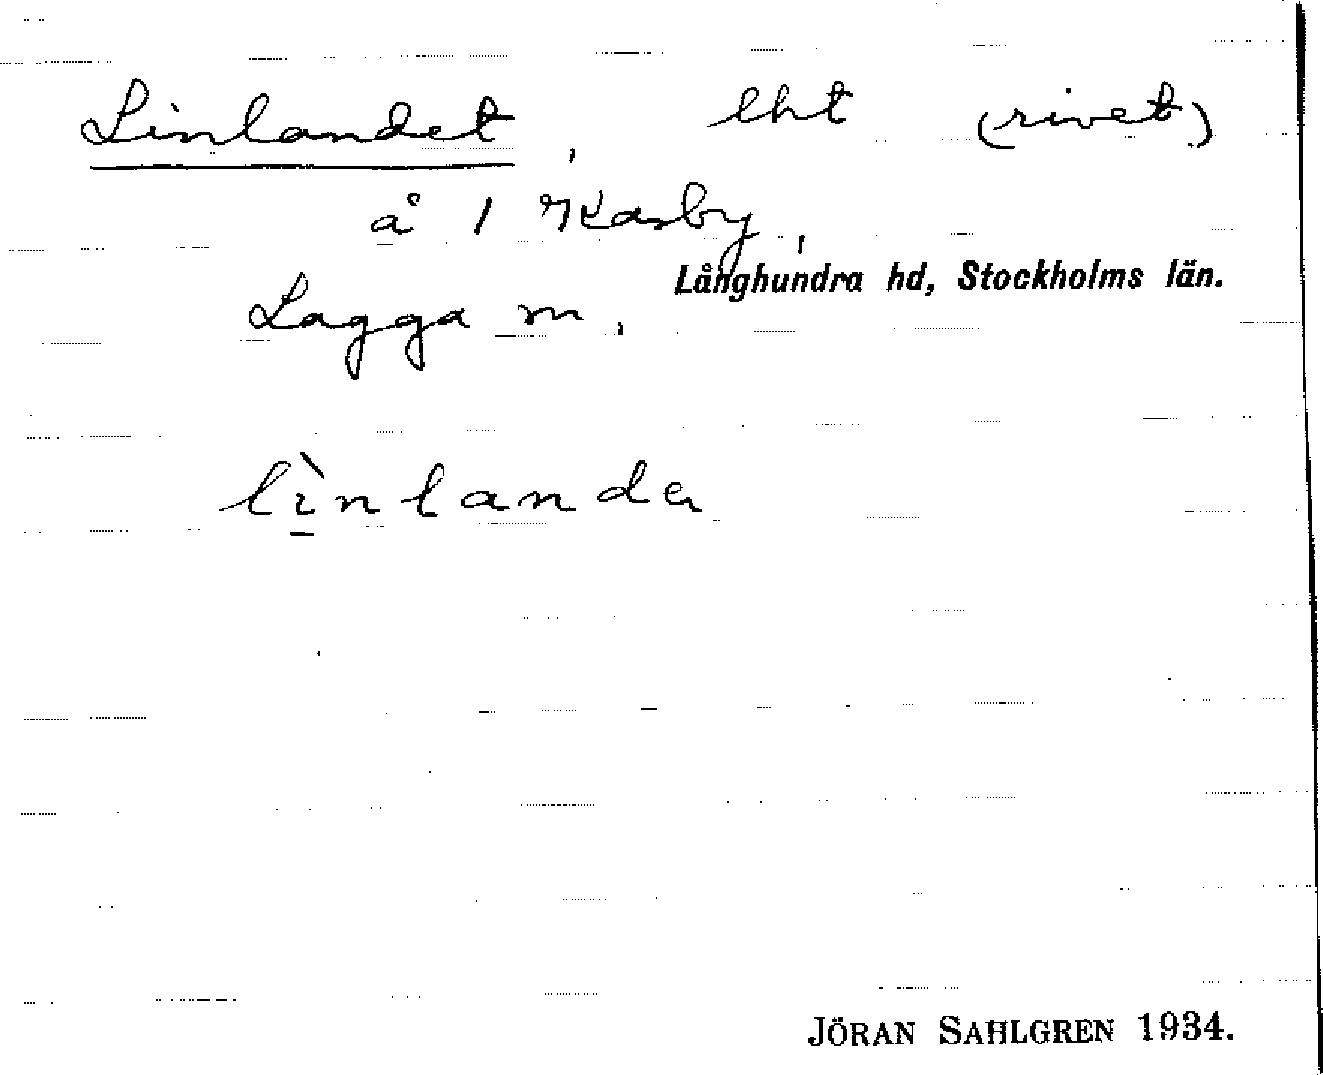 Linlandet, lht (rivet)
å 1 Kasby,
Långhundra hd, Stockholms län.
Lagga sn.
lìnlanda
JÖRAN SAHLGREN 1934.